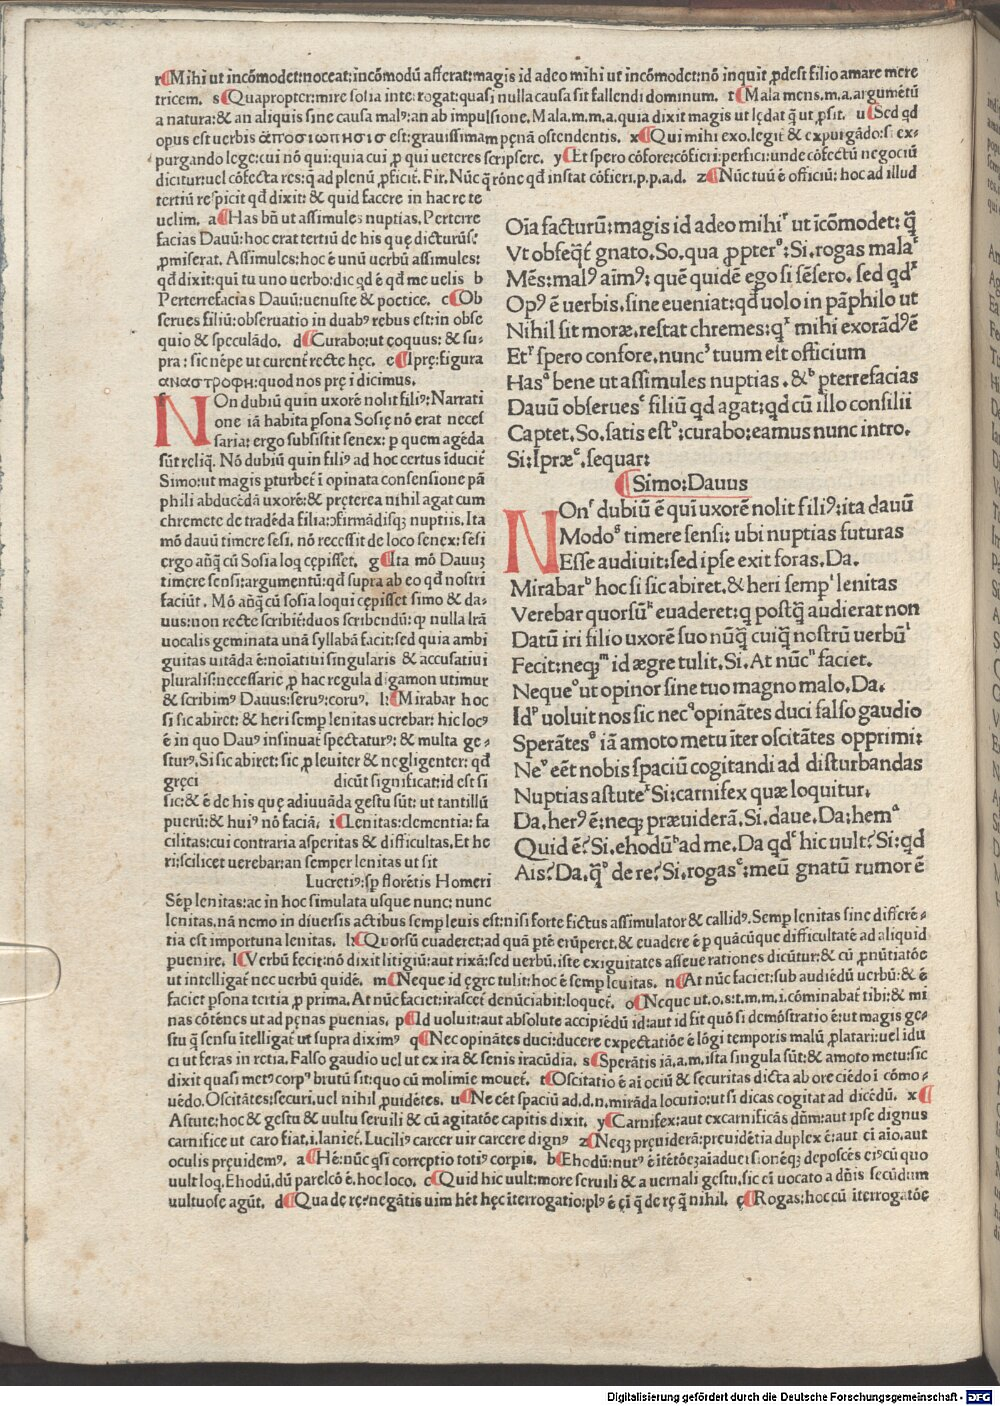 r Mihi ut incōmodet:noceat:incōmodū afferat:magis id adeo mihi ut incōmodet:nō inquit ꝓdest filio amare mere
tricem. s Quapropter:mire sosia interrogat:quasi nulla causa sit fallendi dominum. t Mala mens.m.a.argumētū
a natura:& an aliquis sine causa malꝰ:an ab impulsione. Mala.m.m.a.quia dixit magis ut lędat q̄ ut ꝓsit. u Sed qđ
opus est uerbis ἀποσιωπησισ est:grauissimam pęnā ostendentis. x Qui mihi exo.legit & expurgādo:si ex-
purgando lege:cui nō qui:quia cui ꝓ qui ueteres scripsere. y Et spero cōfore:cōfieri:perfici:unde cōfectū negociū
dicitur:uel cōfecta res:q̄ ad plenū ꝓficit. Fir. Nūc q̄ rōne qđ instat cōfieri.p.p.a.d. z Nūc tuū ē officiū: hoc ad illud
tertiū respicit qđ dixit: & quid facere in hac re te
uelim. a Has bn̄ ut assimules nuptias. Perterre
facias Dauū: hoc erat tertiū de his quę dicturūse
ꝓmiserat. Assimules: hoc ē unū uerbū assimules:
qđ dixit: qui tu uno uerbo: dic qđ ē qđ me uelis b
Perterrefacias Dauū: uenuste & poetice. c Ob
serues filiū: obseruatio in duabꝰ rebus est: in obse
quio & speculādo. d Curabo: ut coquus: & su-
pra: sic nēpe ut curent̄ recte hęc. e Ipre: figura
αναστροφη: quod nos prę i dicimus.
NOn dubiū quin uxorē nolit filiꝰ: Narrati
one iā habita psona Sosię nō erat neces
saria: ergo subsistit senex: p quem agēda
sūt reliq̄. Nō dubiū quin filiꝰ ad hoc certus īducit̄
Simo: ut magis pturbet̄ ī opinata consensione pā
phili abducēdā uxorē: & pręterea nihil agat cum
chremete de tradēda filia: ↄfirmādisqꝫ nuptiis. Ita
mō dauū timere sesi, nō recessit de loco senex: sesi
ergo añq̄ cū Sosia loq̄ cępisset. g Ita mō Dauuꝫ
timere sensi: argumentū: qđ supra ab eo qđ nostri
faciūt. Mō añq̄ cū sosia loqui cępisset simo & da-
uus: non recte scribit̄: duos scribendū: ꝙ nulla lrā
uocalis geminata unā syllabā facit: sed quia ambi
guitas uitāda ē: noīatiui singularis & accusatiui
pluralis: necessarie ꝓ hac regula digamon utimur
& scribimꝰ Dauus: seruꝰ: coruꝰ. h Mirabar hoc
si sic abiret: & heri semp lenitas uerebar: hic locꝰ
ē in quo Dauꝰ insinuat̄ spectaturꝰ: & multa ge-
sturꝰ. Si sic abiret: sic ꝓ leuiter & negligenter: qđ
gręci dicūt significat: id est si
sic: & ē de his quę adiuuāda gestu sūt: ut tantillū
puerū: & huiꝰ nō faciā. i Lenitas: clementia: fa
cilitas: cui contraria asperitas & difficultas. Et he
ri: scilicet uerebar: an semper lenitas ut sit
Lucretiꝰ: sp florētis Homeri
Sēp lenitas: ac in hoc simulata usque nunc: nunc
Oīa facturū: magis id adeo mihiʳ ut īcōmodet: q̄
Vt obseq̄t̄ gnato. So. qua ꝓpterˢ: Si. rogas malaᵗ
Mēs: malꝰ aīmꝰ: quē quidē ego si sēsero. sed qđᵘ
Opꝰ ē uerbis. sine eueniat: qđ uolo in pāphilo ut
Nihil sit moræ. restat chremes: qˣ mihi exorādꝰ ē
Etʸ spero confore. nuncᶻ tuum est officium
Hasᵃ bene ut assimules nuptias. &ᵇ pterrefacias
Dauū obseruesᶜ filiū qđ agat: qđ cū illo consilii
Captet. So. satis estᵈ: curabo: eamus nunc intro.
Si: Ipræᵉ. sequar:
Simo: Dauus
NOnᶠ dubiū ē quī uxorē nolit filiꝰ: ita dauū
Modoᵍ timere sensi: ubi nuptias futuras
Esse audiuit: sed ipse exit foras. Da.
Mirabarʰ hoc si sic abiret. & heri sempⁱ lenitas
Verebar quorsūᵏ euaderet: q postq̄ audierat non
Datū iri filio uxorē suo nūq̄ cuiq̄ nostrū uerbūˡ
Fecit: neqꝫᵐ id ægre tulit. Si. At nūcⁿ faciet.
Nequeᵒ ut opinor sine tuo magno malo. Da.
Idᵖ uoluit nos sic necᑫ opinātes duci falso gaudio
Sperātesˢ iā amoto metu īter oscitātes opprimi:
Neᵘ eēt nobis spaciū cogitandi ad disturbandas
Nuptias astuteˣ Si: carnifex quæ loquitur.
Da. herꝰ ē: neqꝫ præuiderā. Si. daue. Da: hemᵃ
Quid ē? Si. ehodūᵇ ad me. Da qđᶜ hic uult? Si: qđ
Ais? Da. q̄ᵈ de re? Si. rogasᵉ: meū gnatū rumor ē
lenitas. nā nemo in diuersis actibus semp leuis est: nisi forte fictus assimulator & callidꝰ. Semp lenitas sine differē-
tia est importuna lenitas. k Quorsū euaderet: ad quā ptē erūperet. & euadere ē p quācūque difficultatē ad aliquid
puenire. l Verbū fecit: nō dixit litigiū: aut rixā: sed uerbū. iste exiguitates asseuerationes dicūtur: & cū ꝓnūtiatōe
ut intelligat̄ nec uerbū quidē. m Neque id ęgre tulit: hoc ē semp leuitas. n At nūc faciet: sub audiēdū uerbū: & ē
faciet psona tertia ꝓ prima. At nūc faciet: irascet̄ denūciabit: loquet̄. o Neque ut.o.s.t.m.m.i.cōminabat̄ tibi: & mi
nas cōtēnes ut ad pęnas puenias. p Id uoluit: aut absolute accipiēdū id: aut id fit quō si demōstratio ē: ut magis ge-
stu q̄ sensu ītelligat̄ ut supra diximꝰ q Nec opinātes duci: ducere expectatiōe ē lōgi temporis malū ꝓlatari: uel idu
ci ut feras in retia. Falso gaudio uel ut ex ira & senis iracūdia. s Sperātis iā.a.m.ista singula sūt: & amoto metu: sic
dixit quasi metꝰ corpꝰ brutū sit: quo cū molimīe mouet̄. t Oscitatio ē aī ociū & securitas dicta ab ore ciēdo ī cōmo-
uēdo. Oscitātes: securi. uel nihil ꝓuidētes. u Ne eēt spaciū ad.d.n.mirāda locutio: ut si dicas cogitat ad dicēdū. x
Astute: hoc & gestu & uultu seruili & cū agitatōe capitis dixit. y Carnifex: aut excarnificās dn̄m: aut ipse dignus
carnifice ut caro fiat.i.laniet̄. Luciliꝰ carcer uir carcere dignꝰ z Neqꝫ pręuiderā: preuidētia duplex ē: aut eī aīo. aut
oculis pręuidemꝰ. a Hē: nūc q̄si correptio totiꝰ corpis. b Ehodū: nutꝰ ē
uult loq̄. Ehodū. dū parelcō ē. hoc loco. c Quid hic uult: more seruili & a uernali gestu. sic eī uocato a dn̄is secūdum
uultuose agūt. d Qua de rę: negātis uim hēt hęc īterrogatio: plꝰ ē eī q̄ de rę q̄ nihil. e Rogas: hoc cū īterrogatōe
Digitalisierung gefördert durch die Deutsche Forschungsgemeinschaft - DFG